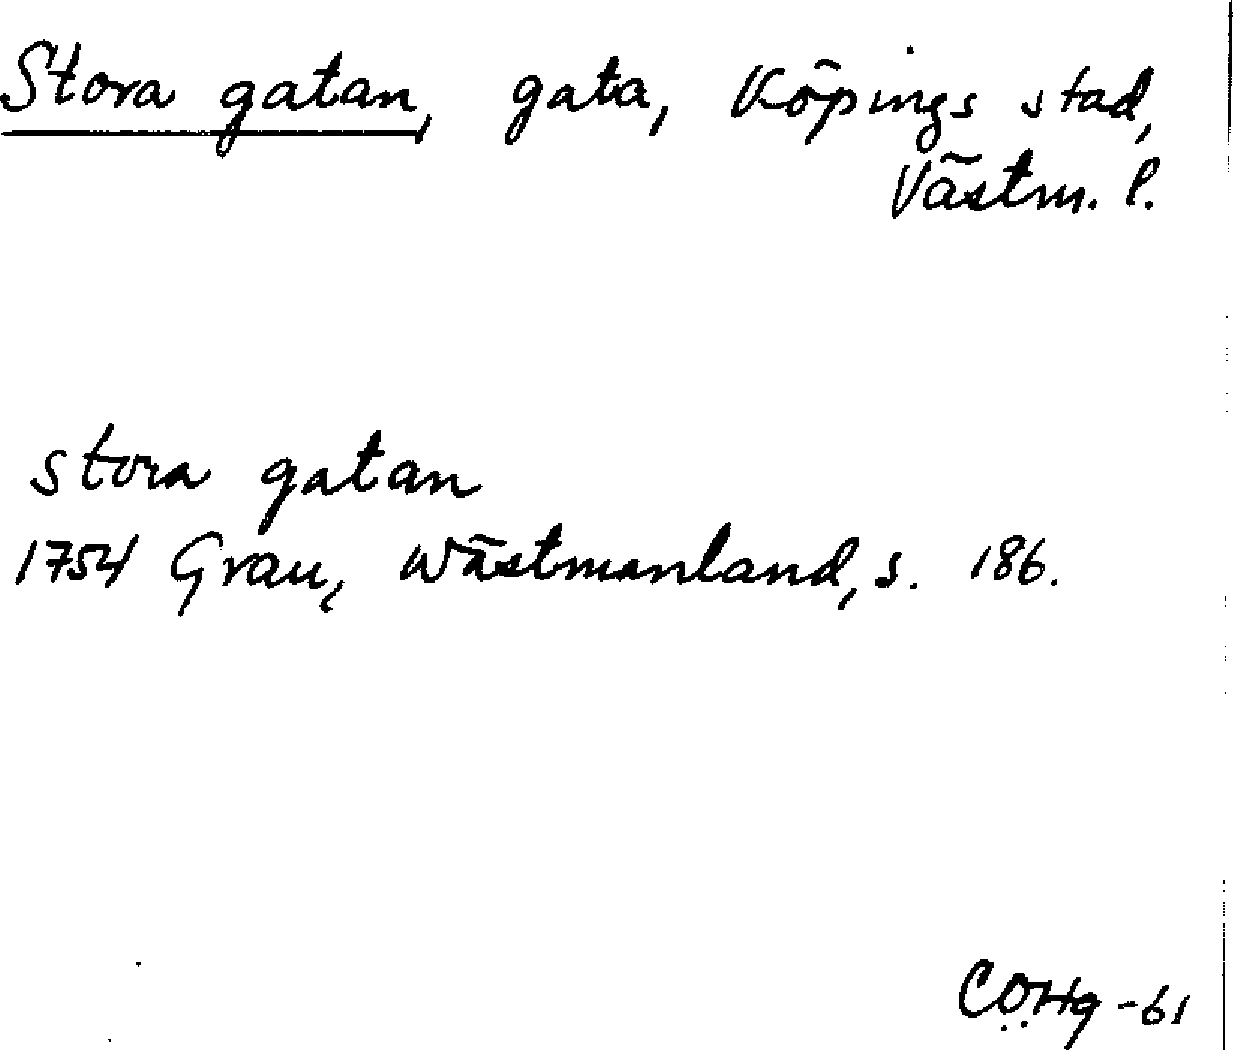 Stora gatan, gata, Köpings stad,
Västm. l.
stora gatan
1754 Grau, Wästmanland, s. 186.
COHg -61